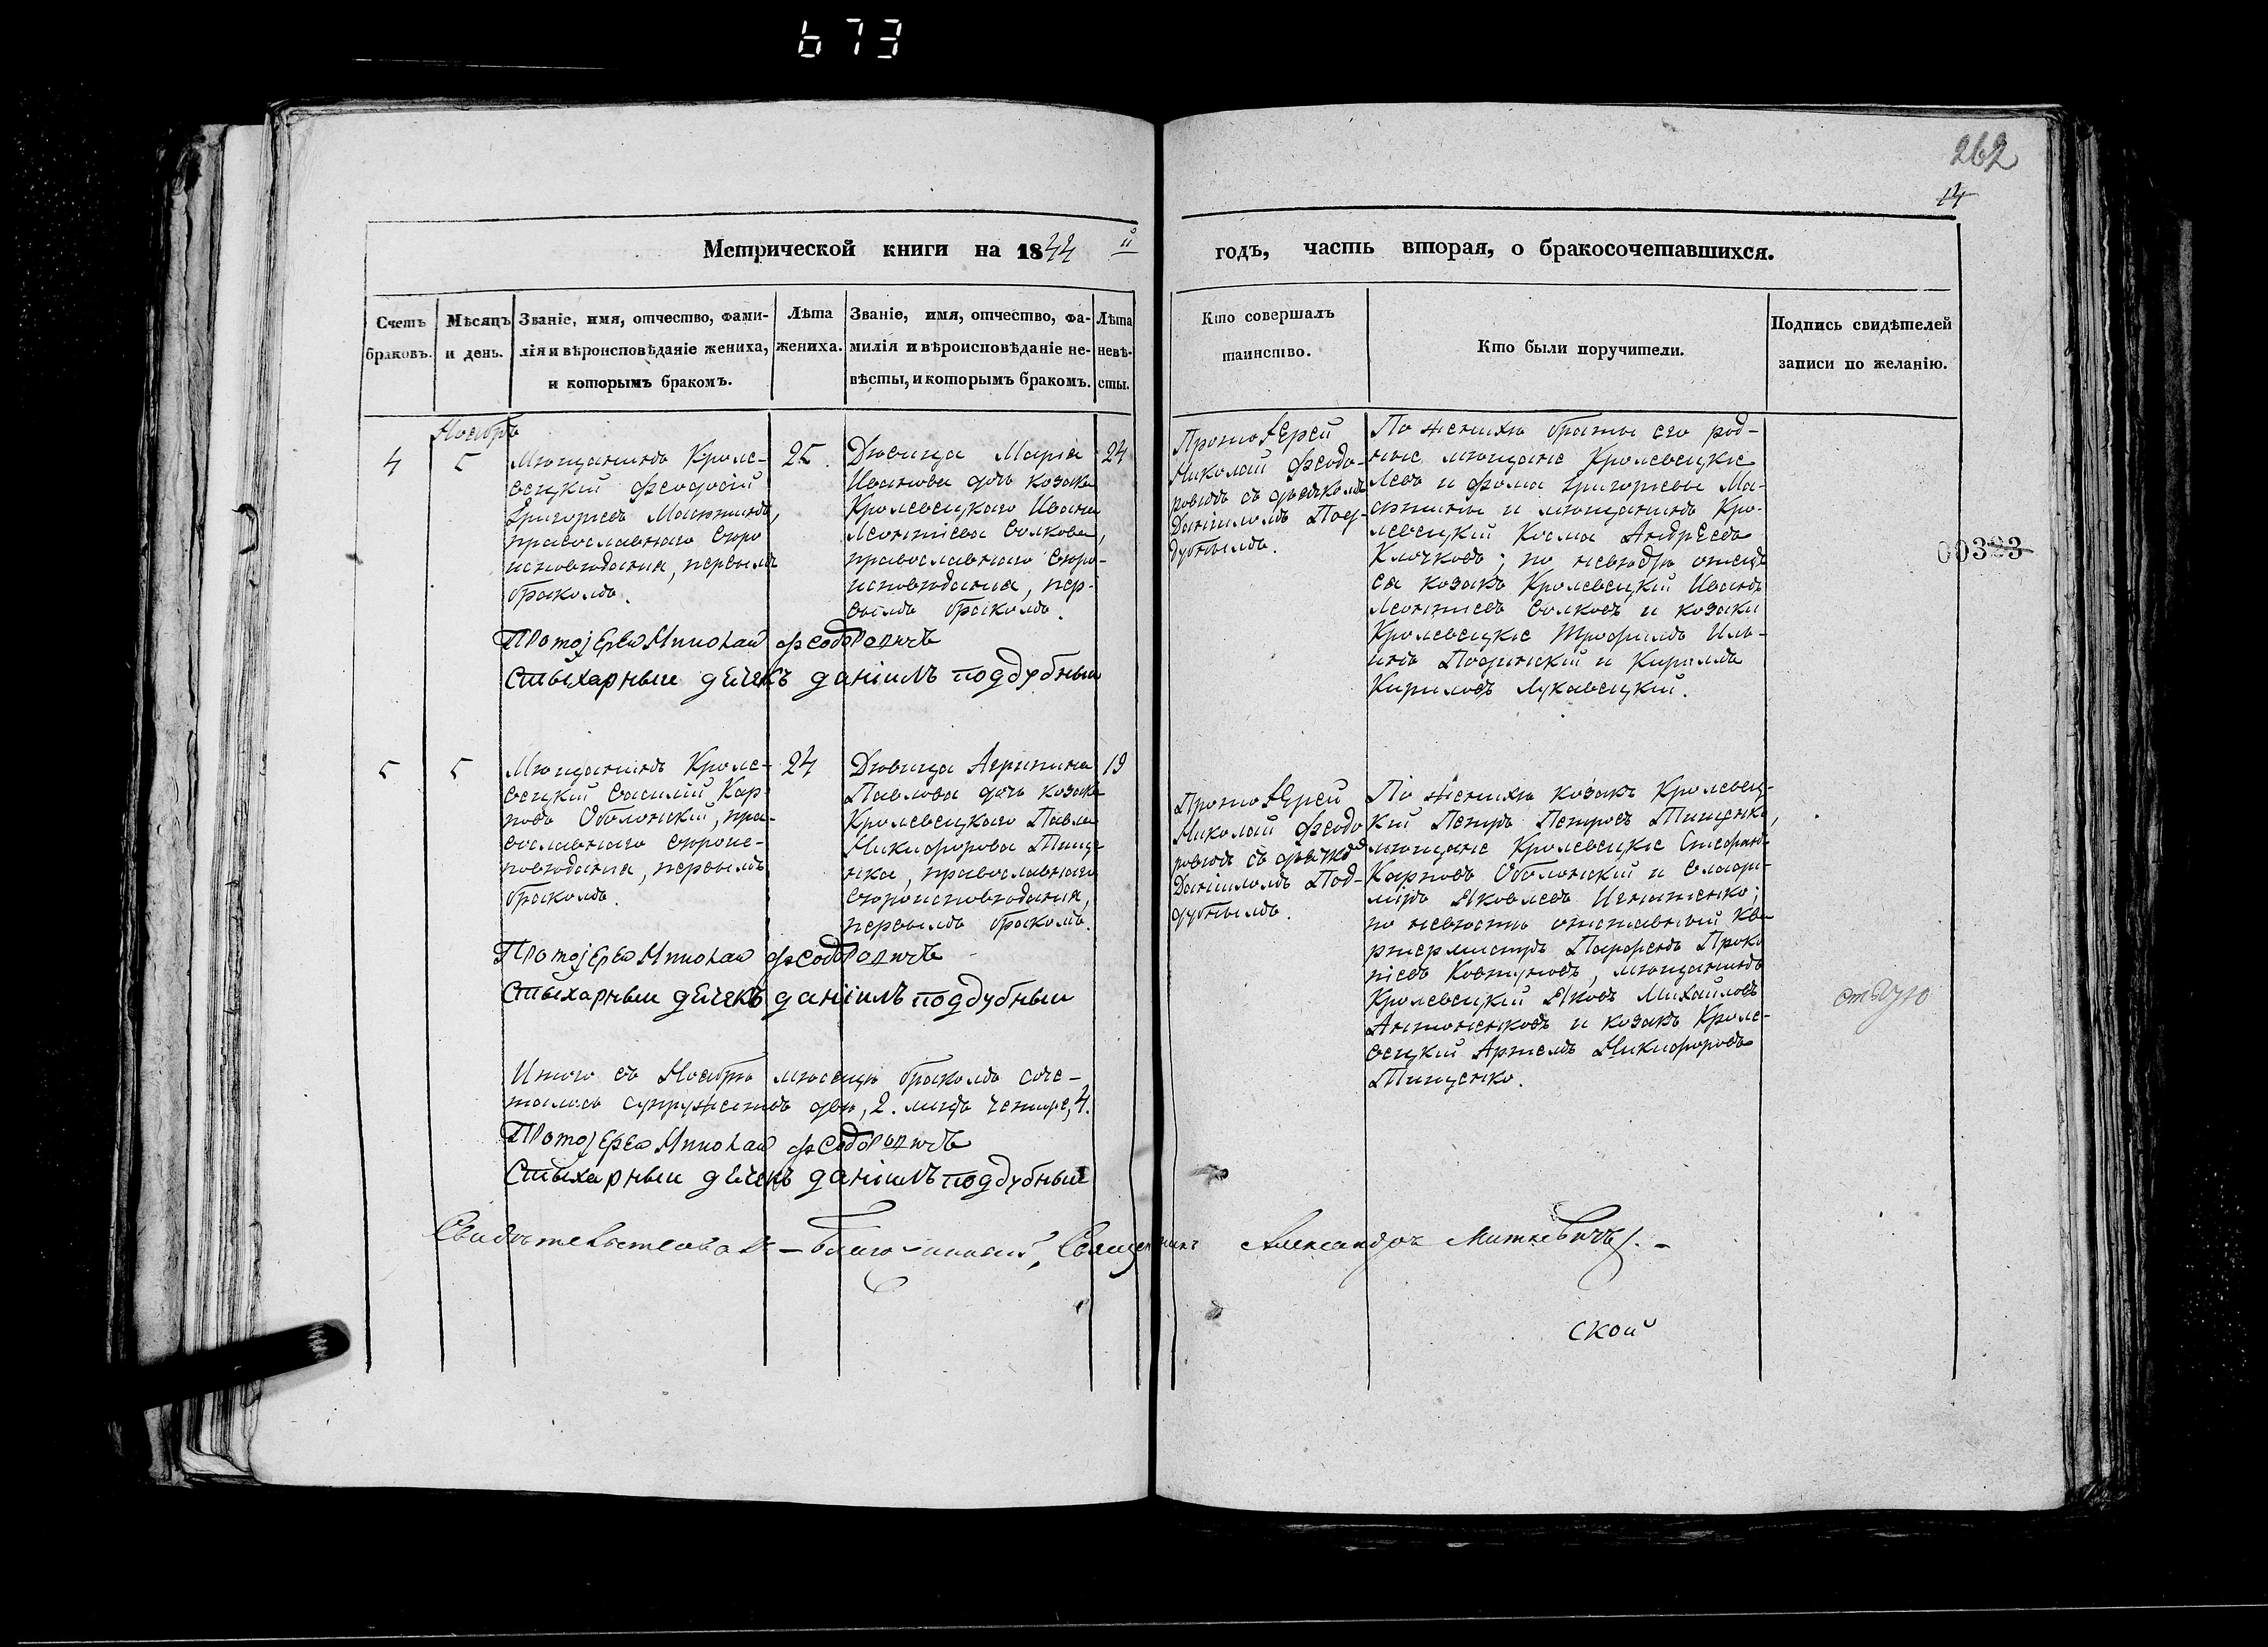 673
262
14
Метрической книги на 1844й годъ, часть вторая, о бракосочетавшихся.
Счетъ
браковъ.
Мѣсяцъ
и день.
Званіе, имя, отчество, фами-
лія и вѣроисповѣданіе жениха,
и которымъ бракомъ.
Лѣта
жениха.
Званіе, имя, отчество, фа-
милія и вѣроисповѣданіе не-
вѣсты, и которымъ бракомъ.
Лѣта
невѣ-
сты.
Кто совершалъ
таинство.
Кто были поручители.
Подпись свидѣтелей
записи по желанію.
Ноябрь
4
5
Мѣщанинъ Кроле-
вецкій Феодосій
Григорьевъ
православнаго вѣро
исповѣданія, первымъ
бракомъ.
25.
Дѣвица Марія
Иванова дочь козака
Кролевецкаго Ивана
Леонтіева Волкова,
православнаго вѣро-
исповѣданія, пер-
вымъ бракомъ.
24
Протоіерей
Николай Феодо-
ровичъ съ дьячкомъ
Даніиломъ Под-
дубнымъ.
По женихѣ братья его род-
ные мѣщане Кролевецкіе
Левъ и Фома Григорьевы
и мѣщанинъ Кро-
левецкій Косма Андреевъ
Клочковъ; по невѣстѣ отецъ
ея козакъ Кролевецкій Иванъ
Леонтіевъ Волковъ и козаки
Кролевецкіе Трофимъ Иль-
инъ и Кириллъ
Кириловъ Лукавецкій.
00323
Протоjерей Николай Феодоровичъ
Стыхарный дячекъ даніилъ поддубный
5
5
Мѣщанинъ Кроле-
вецкій Василій Кар-
повъ Оболонскій, пра-
вославнаго вѣроис-
повѣданія, первымъ
бракомъ.
24
Дѣвица Агрипина
Павлова дочь козака
Кролевецкаго Павла
Никифорова Тище-
нка, православнаго
вѣроисповѣданія,
первымъ бракомъ.
19
Протоіерей
Николай Феодо
ровичъ съ дьячко
Даніиломъ Под-
дубнымъ.
По женихѣ козакъ Кролевец-
кій Петръ Петровъ Тищенко,
мѣщане Кролевецкіе Стефанъ
Карповъ Оболонскій и Влади-
міръ Яковлевъ Игнатенко;
по невѣстѣ отставный ква
ртермистръ Парфенъ Проко
піевъ Ковтуновъ, мѣщанинъ
Кролевецкій Яковъ Михайловъ
Антоненковъ и козакъ Кроле-
вецкій Артемъ Никифоровъ
Тищенко.
Протоjерей Николай Феодоровичъ
Стыхарный дячекъ даніилъ поддубный
Итого въ Ноябрѣ мѣсяцѣ бракомъ соче-
талось супружествъ двѣ, 2. лицъ четыре, 4.
Протоjерей Николай Феодоровичъ
Стыхарный дячекъ даніилъ поддубный
Свидѣтельствовалъ – Благочинный, Священникъ Александръ Миткевичъ. –
ской